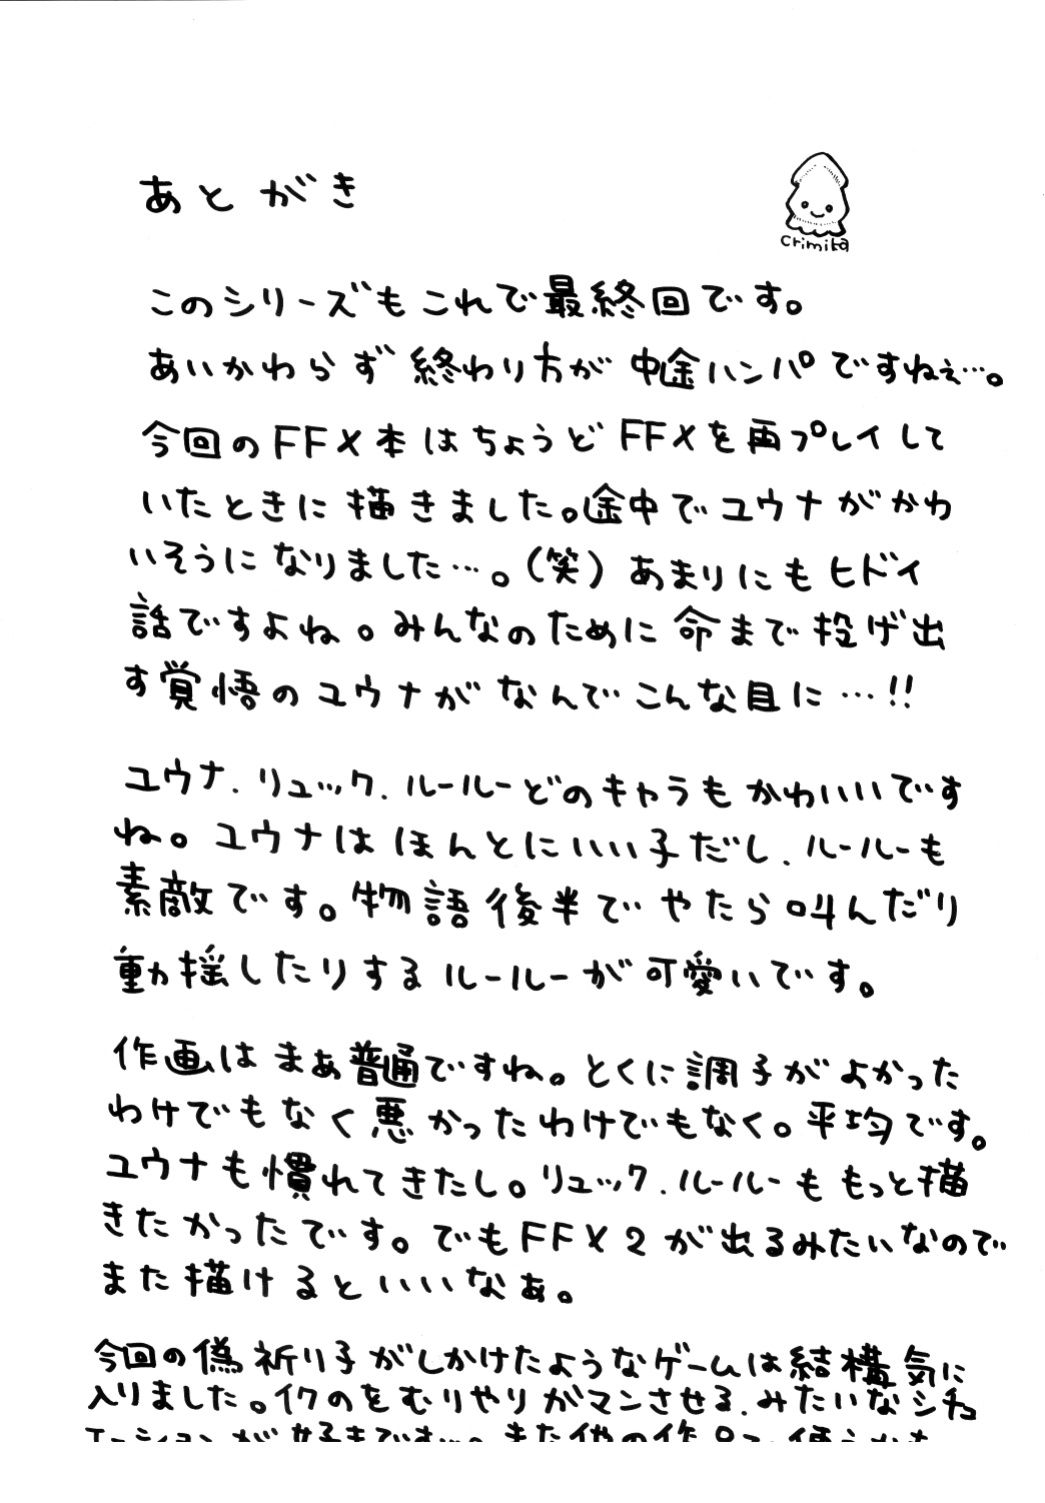 あとがき
crimita
このシリーズもこれで最終回です。
あいかわらず終わり方が中途ハンパですねぇ…。
今回のFFX本はちょうどFFXを再プレイして
いたときに描きました。途中でユウナがかわ
いそうになりました…。(笑)あまりにもヒドイ
話ですよね。みんなのために命まで投げ出
す覚悟のユウナがなんでこんな目に…!!
ユウナ、リュック、ルールーどのキャラもかわいいです
ね。ユウナはほんとにいい子だし、ルールーも
素敵です。物語後半でやたら叫んだり
動揺したりするルールーが可愛いです。
作画はまぁ普通ですね。とくに調子がよかった
わけでもなく悪かったわけでもなく。平均です。
ユウナも慣れてきたし。リュック、ルールーももっと描
きたかったです。でもFFX2が出るみたいなので
また描けるといいなぁ。
今回の偽祈り子がしかけたようなゲームは結構気に
入りました。イクのをむりやりガマンさせる、みたいなシチュ
エーションが好きです…。また他の作品で使うかも